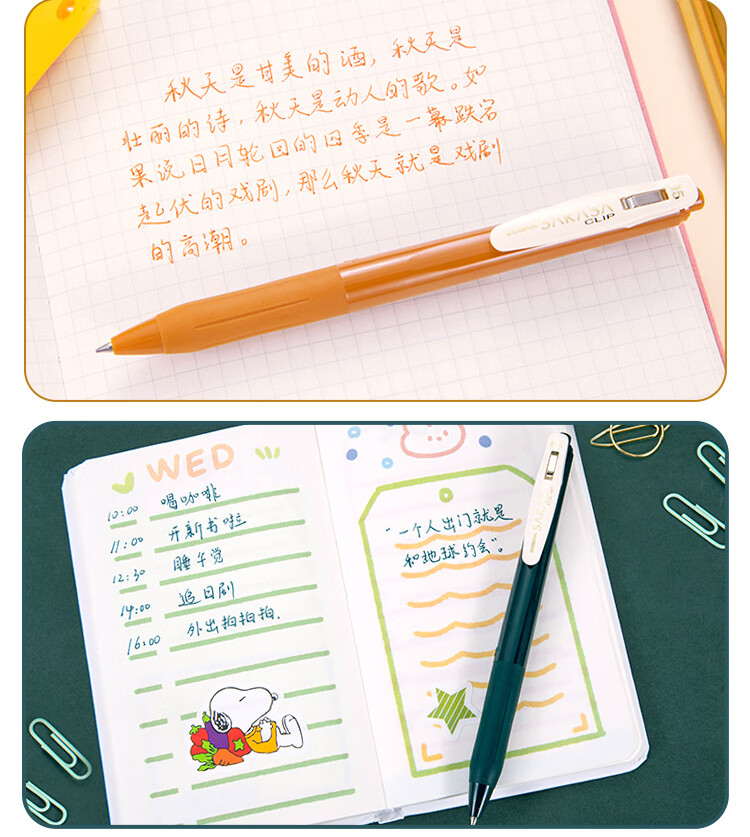 秋天是甘美的酒，秋天是
壮丽的诗，秋天是动人的歌。如
果说日月轮回的四季是一幕跌宕
起伏的戏剧，那么秋天就是戏剧
的高潮。
SARASA
CLIP
0.5
WED
10:00 喝咖啡
11:00 开新书啦
12:30 睡午觉
14:00 追日剧
16:00 外出拍拍拍.
"一个人出门就是
和地球约会"。
SARASA